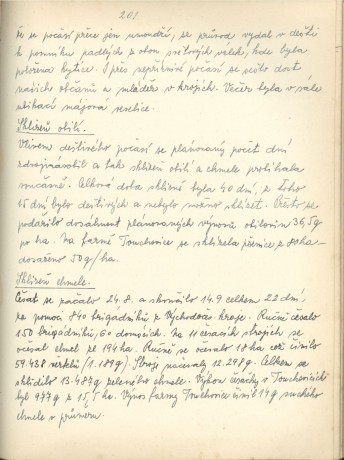 201
že se počasí přece jen umoudří, se průvod vydal v dešti
k pomníku padlých z obou světových válek, kde byla
položena kytice. I přes nepříznivé počasí se sešlo dost
našich občanů a mládeže v krojích. Večer byla v sále
májová veselice.
Sklizeň obilí.
Vlivem deštivého počasí se plánovaný počet dní
zdvojnásobil a tak sklizeň obilí a chmele probíhala
současně. Celková doba sklizně byla 40 dní, z toho
15 dní bylo deštivých a nebylo možno sklízet. Přesto se
podařilo dosáhnout plánovaných výnosů obilovin 36,5q
po ha. Na farmě Touchovice se sklízela pšenice z 80 ha-
dosaženo 50q/ha.
Sklizeň chmele.
Česat se začalo 24.8. a skončilo 14.9. celkem 22 dní,
za pomoci 840 brigádníků z Východočes. kraje. Ručně česalo
150 brigádníků, 60 domácích. Na 11 česacích strojích se
očesal chmel ze 194 ha. Ručně se očesalo 18 ha což činilo
59.438 věrtelů (1.189q). Stroj načesaly 12.298q. Celkem se
sklidilo 13.487q zeleného chmele. Výkon česačky v Touchovicích
byl 977q z 15,5 ha. Výnos farmy Touchovice činil 14q suchého
chmele v průměru.